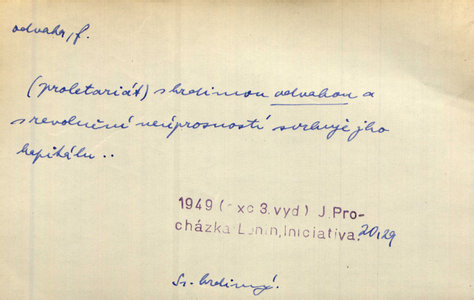 odvaha, f.
(proletariát) s hrdinnou odvahou a
s revoluční neúprosností svrhuje jho
kapitálu..
1949 ( xc 3. vyd) J. Pro-
cházka Lenin, Iniciativa. 20,29
Sr. hrdinný.